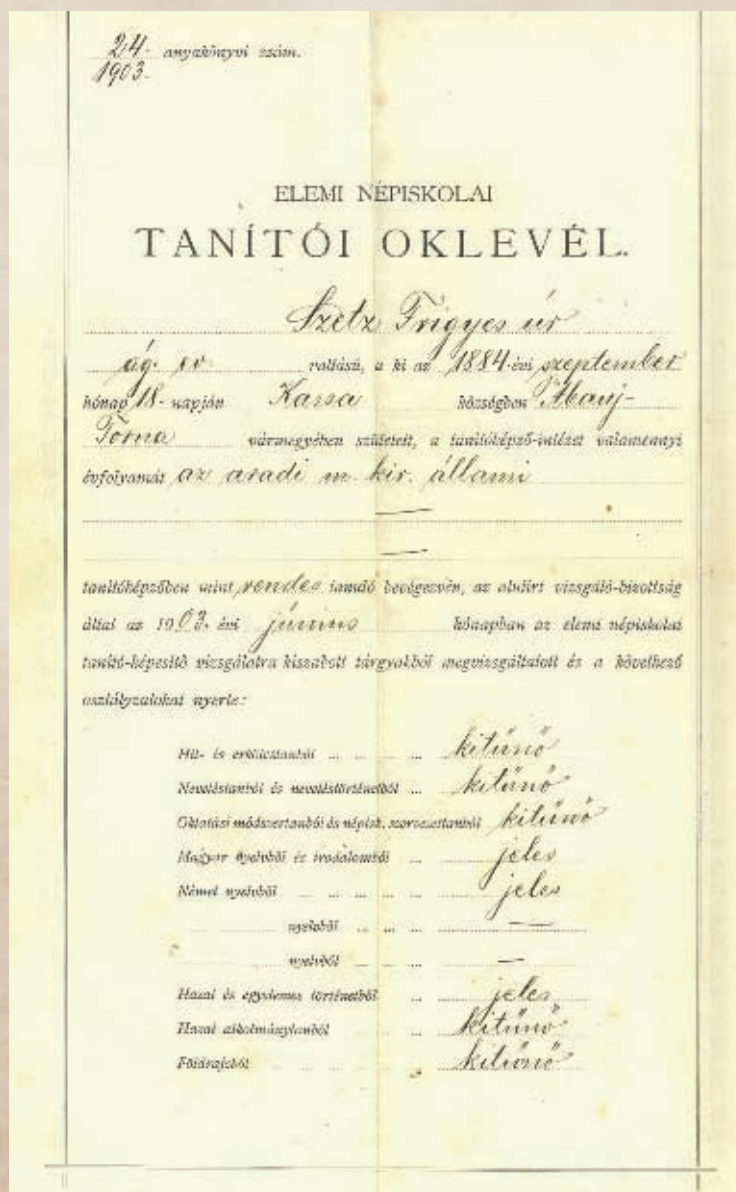 24. anyakönyvi szám.
1903.
ELEMI NÉPISKOLAI
TANÍTÓI OKLEVÉL.
Szetz Frigyes úr
ág. ev vallású, a ki az 1884. évi szeptember
hónap 18. napján Kassa községben Abauj-
Torna vármegyében született, a tanítóképző-intézet valamennyi
évfolyamát az aradi m. kir. állami
—
—
tanítóképzőben mint rendes tanuló bevégezvén, az alulírt vizsgáló-bizottság
által az 1903. évi június hónapban az elemi népiskolai
tanító-képesítő vizsgálatra kiszabott tárgyakból megvizsgáltatott és a következő
osztályzatokat nyerte:
Hit- és erkölcstanból ... ... ... ... kitünő
Neveléstanból és neveléstörténetből ... kitünő
Oktatási módszertanból és népisk. szervezettanból kitünő
Magyar nyelvből és irodalomból ... jeles
Német nyelvből ... ... ... ... jeles
nyelvből ... ... ... —
nyelvből ... ... —
Hazai és egyetemes történetből ... jeles
Hazai alkotmánytanból ... kitünő
Földrajzból ... kitünő